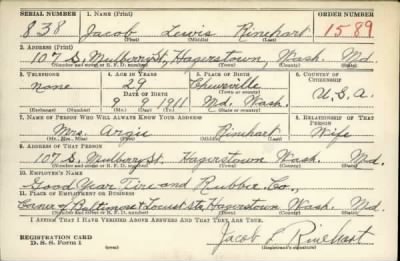 SERIAL NUMBER 1. NAME (Print) ORDER NUMBER
838 Jacob Lewis Rinehart 1589
(First) (Middle) (Last)
2. ADDRESS (Print)
107 S. Mulberry St, Hagerstown, Wash. Md.
(Number and street or R. F. D. number) (Town) (County) (State)
3. TELEPHONE 4. AGE IN YEARS 5. PLACE OF BIRTH 6. COUNTRY OF CITIZENSHIP
None 29 Chewsville
DATE OF BIRTH
9 9 1911 Md. Wash. U.S.A.
(Exchange) (Number) (Mo.) (Day) (Yr.)
7. NAME OF PERSON WHO WILL ALWAYS KNOW YOUR ADDRESS RELATIONSHIP OF THAT PERSON
Mrs. Rinehart Wife
(Mr., Mrs., Miss) (First) (Middle) (Last)
8. ADDRESS OF THAT PERSON
107 S. Mulberry St. Hagerstown Wash. Md.
(Number and street or R. F. D. number) (Town) (County) (State)
10. EMPLOYER'S NAME
Good Year Tire and Rubber Co.,
11. PLACE OF EMPLOYMENT OR BUSINESS
Corner of Baltimore & Locust Sts, Hagerstown Wash. Md.
(Number and street or R. F. D. number) (Town) (County) (State)
I AFFIRM THAT I HAVE VERIFIED ABOVE ANSWERS AND THAT THEY ARE TRUE.
REGISTRATION CARD
D. S. S. Form 1 (over) Jacob L Rinehart
(Registrant's signature)